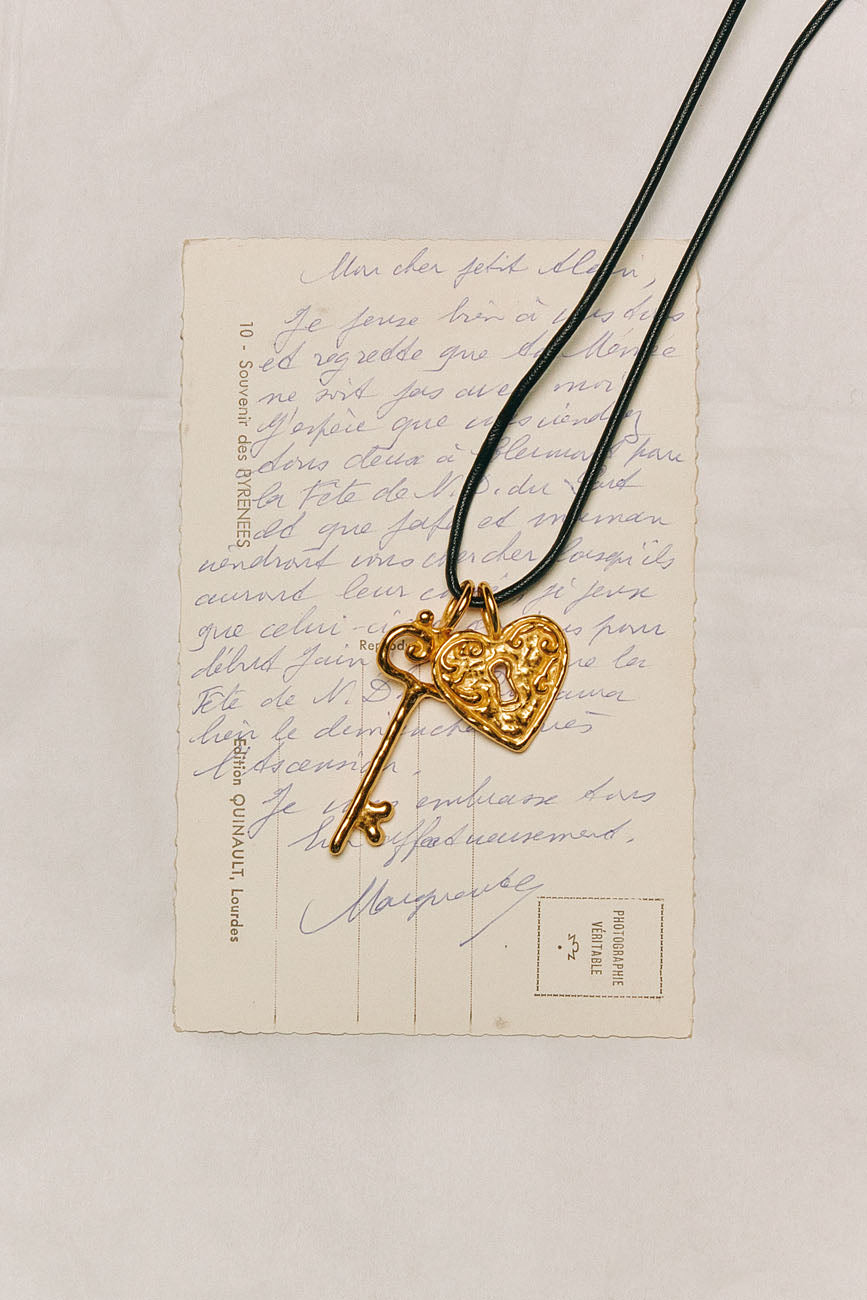 Mon cher petit Alain,
Je pense bien à vous tous
et regrette que ta Mémée
ne soit pas avec moi
J'espère que vous viendrez
tous deux à Clermont pour
la Fête de N. D. du Port
et que papa et maman
viendront vous chercher lorsqu'ils
auront leur congé, je pense
que celui-ci pour
début Juin la
Fête de N. D. aura
lieu le dimanche après
l'Ascension.
Je vous embrasse tous
bien affectueusement.
Marguerite
10 - Souvenir des PYRENEES
Edition QUINAULT, Lourdes
Reprod
PHOTOGRAPHIE
VÉRITABLE